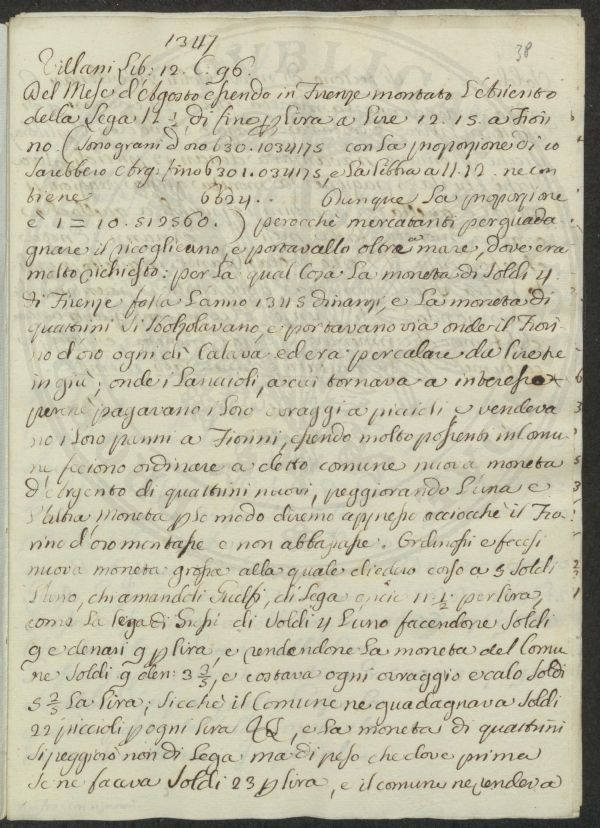 1347
38
Villani Lib: 12. C. 96.
Del Mese d'Agosto essendo in Firenze montato l'Ariento
della Lega 11 ½ di fino p lira a Lire 12. 15. a Fiori
no. (sono grani d'oro 630.1034175 con la proporzione di 10
sarebbero Arg. fino 6301.034175, e la libbra a 11.12 ne con
tiene 6624.. Dunque la proporzione
è 1 = 10.512560.) perocchè mercatanti per guada
gnare il ricoglieano, e portavallo oltre mare, dove era
molto richiesto: per la qual cosa la moneta di soldi 4
di Firenze fatta l'anno 1345 dinanzi, e la moneta di
quattrini si portavano via onde il Fiori
no d'oro ogni dì calava ed era per calare da lire tre
in giù; onde i Lanaioli, a cui tornava a interesse
perchè pagavano i loro ovraggi a piccioli e vendeva
no i loro panni a Fiorini, essendo molto possenti in Comu
ne feciono ordinare a detto comune nuova moneta
d'Argento di quattrini nuovi, peggiorando l'una e
l'altra moneta p lo modo diremo appresso acciocchè il Fio
rino d'oro montasse e non abbassasse. Ordinossi e fecesi
nuova moneta grossa alla quale diedero corso a 5 soldi
l'uno, chiamandoli Guelfi, di Lega oncie 11 ½ per lira,
come la lega di di soldi 4 l'uno facendone soldi
9 e denari 9 p lira, e rendendone la moneta del Comu
ne soldi 9 den: 3 2/5, e costava ogni ovraggio e calo soldi
5 2/3 la lira; sicchè il Comune ne guadagnava soldi
22 piccioli p ogni lira &c, e la moneta di quattrini
si peggiorò non di Lega ma di peso che dove prima
se ne faceva soldi 23 p lira, e il comune ne rendeva